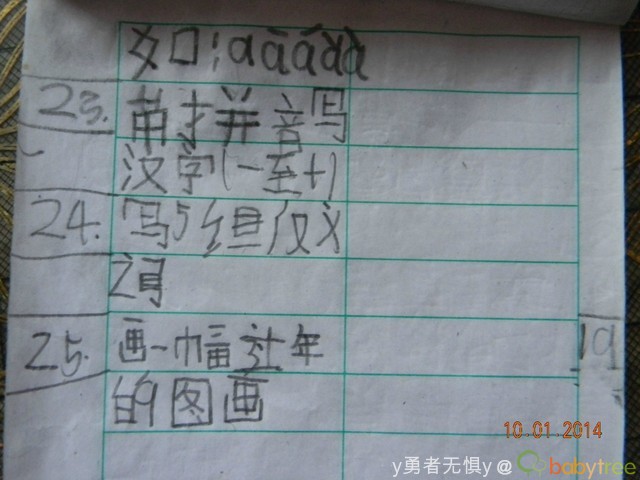 如:aāáǎà
23. 看拼音写
汉字(一至十)
24. 写5组反义
词
25. 画一幅过年
19
的图画
10.01.2014
y勇者无惧y@babytree